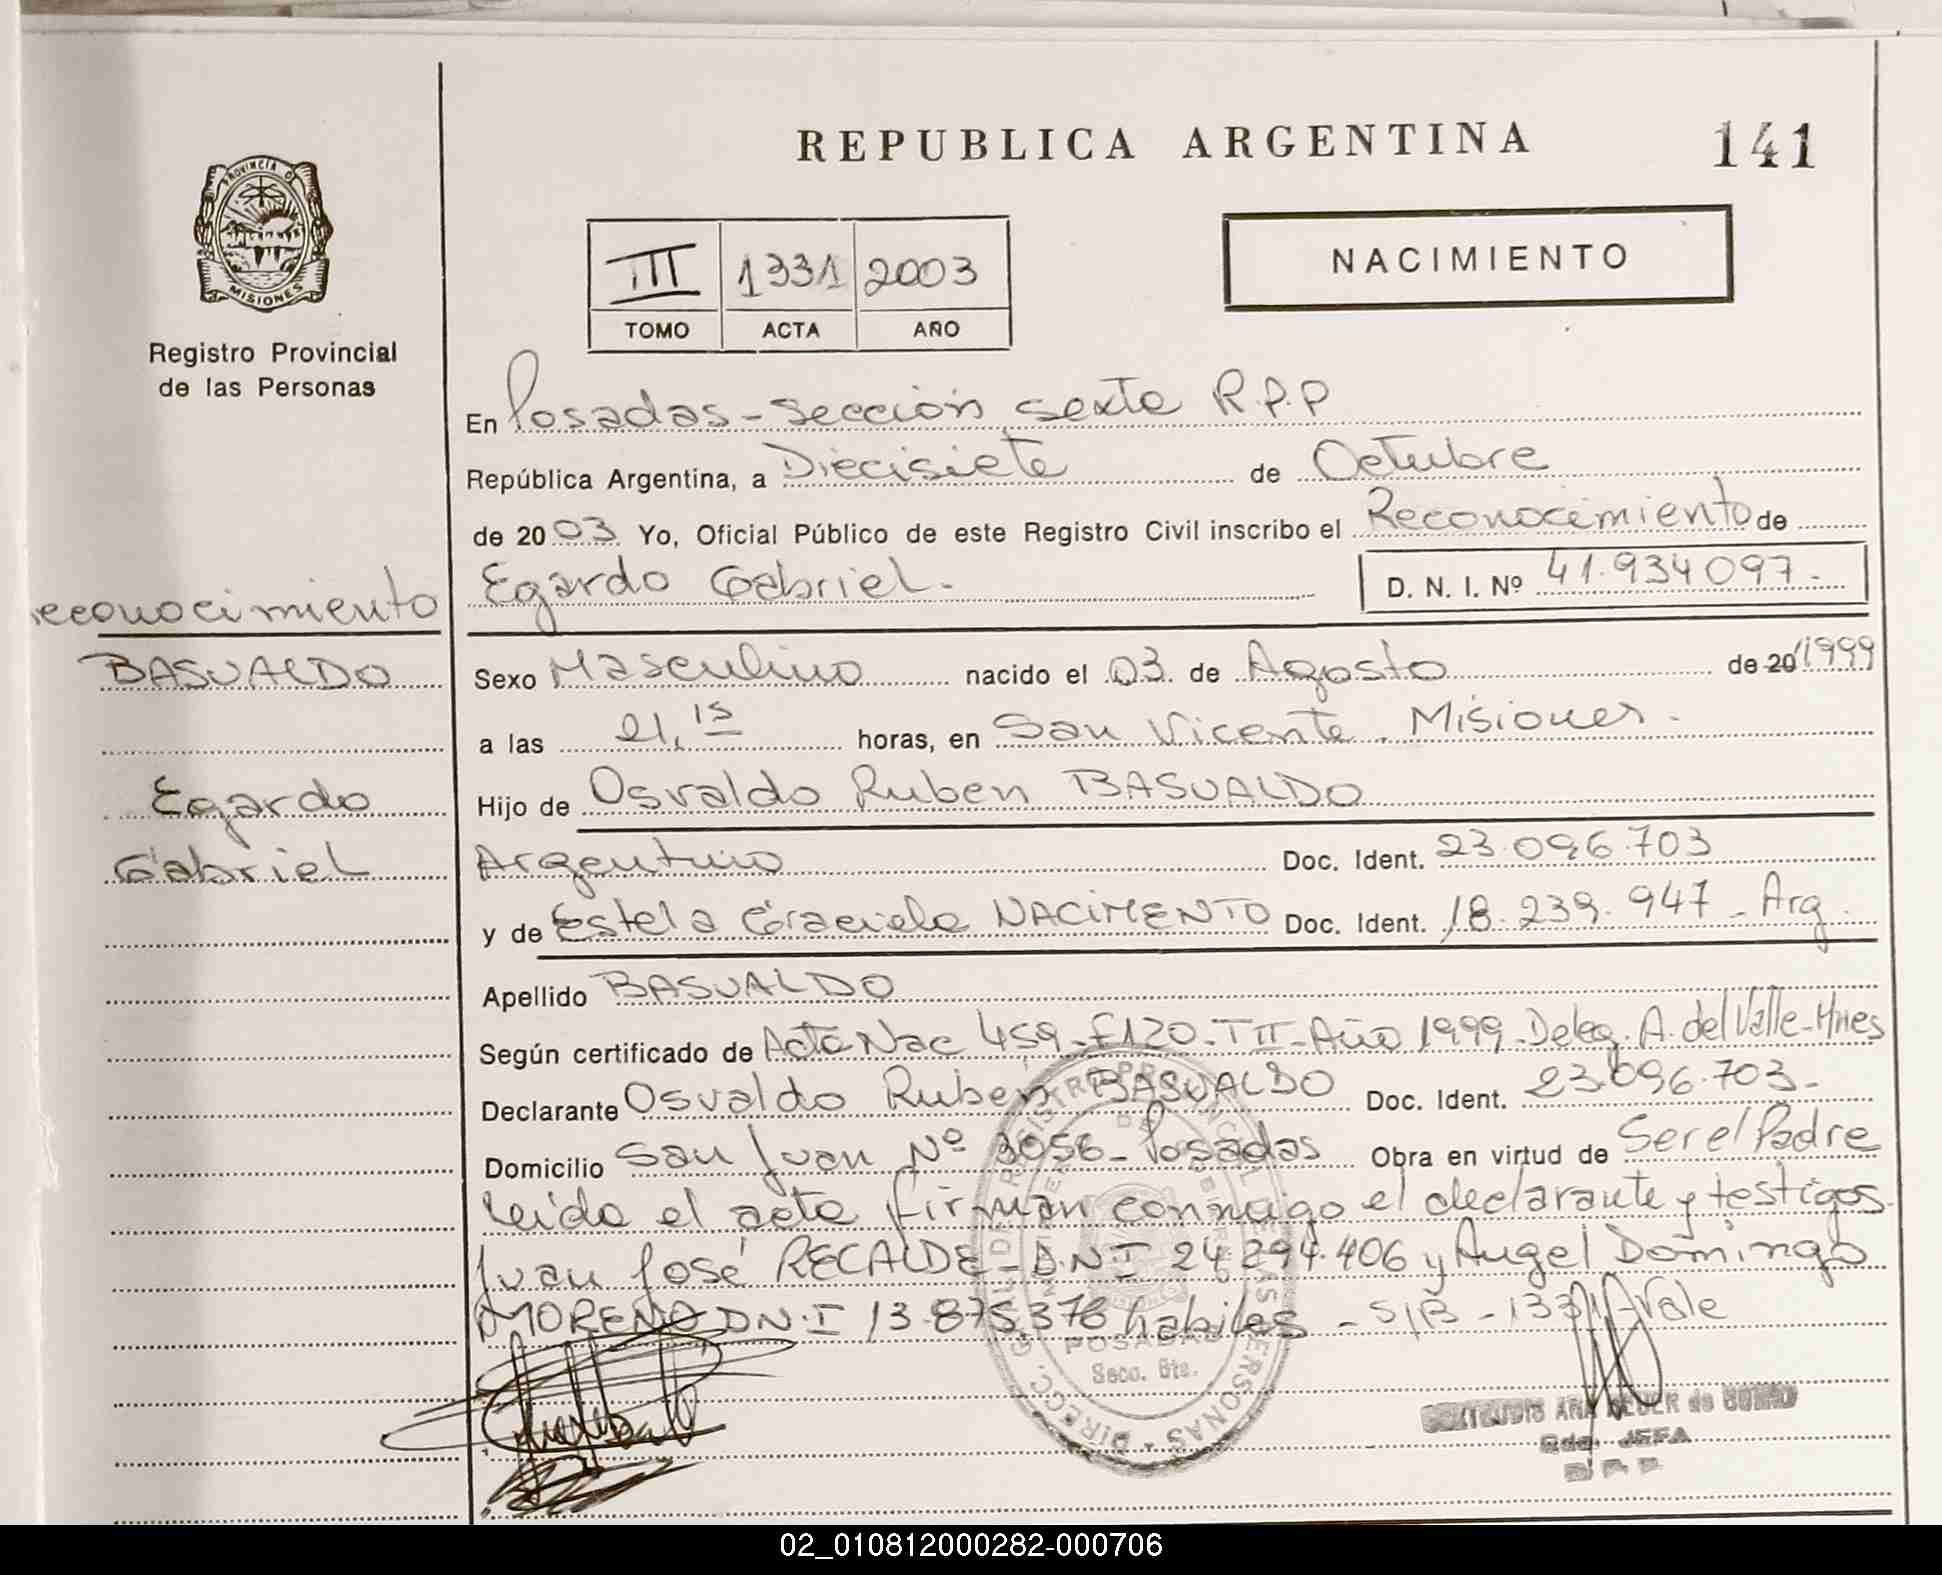 REPUBLICA ARGENTINA
141
PROVINCIA DE
MISIONES
Registro Provincial
de las Personas
III 1331 2003
TOMO ACTA AÑO
NACIMIENTO
En Posadas - sección sexta R.P.P
República Argentina, a Diecisiete de Octubre
de 2003 Yo, Oficial Público de este Registro Civil inscribo el Reconocimiento de
Egardo Gabriel.- D. N. I. Nº 41.934097.-
reconocimiento
BASUALDO
Egardo
Gabriel
Sexo Masculino nacido el 03 de Agosto de 20 1999
a las 21,15 horas, en San Vicente. Misiones.
Hijo de Osvaldo Ruben BASUALDO
Argentino Doc. Ident. 23.096.703
y de Estela Graciela NACIMENTO Doc. Ident. 18.239.947 - Arg.
Apellido BASUALDO
Según certificado de Acta Nac 459 - F120 - TII - Año 1999 - Deleg. A. del Valle - Mnes
Declarante Osvaldo Ruben BASUALDO Doc. Ident. 23.096.703.-
Domicilio San Juan Nº 3056 - Posadas Obra en virtud de Ser el Padre
Leida el acta firman conmigo el declarante y testigos
Juan José RECALDE - D.N.I 24.294.406 y Angel Domingo
MORENO D.N.I 13.875.376 habiles - S/B - 1331 Vale
POSADAS
Secc. 6ta.
Gda. JEFA
02_010812000282-000706